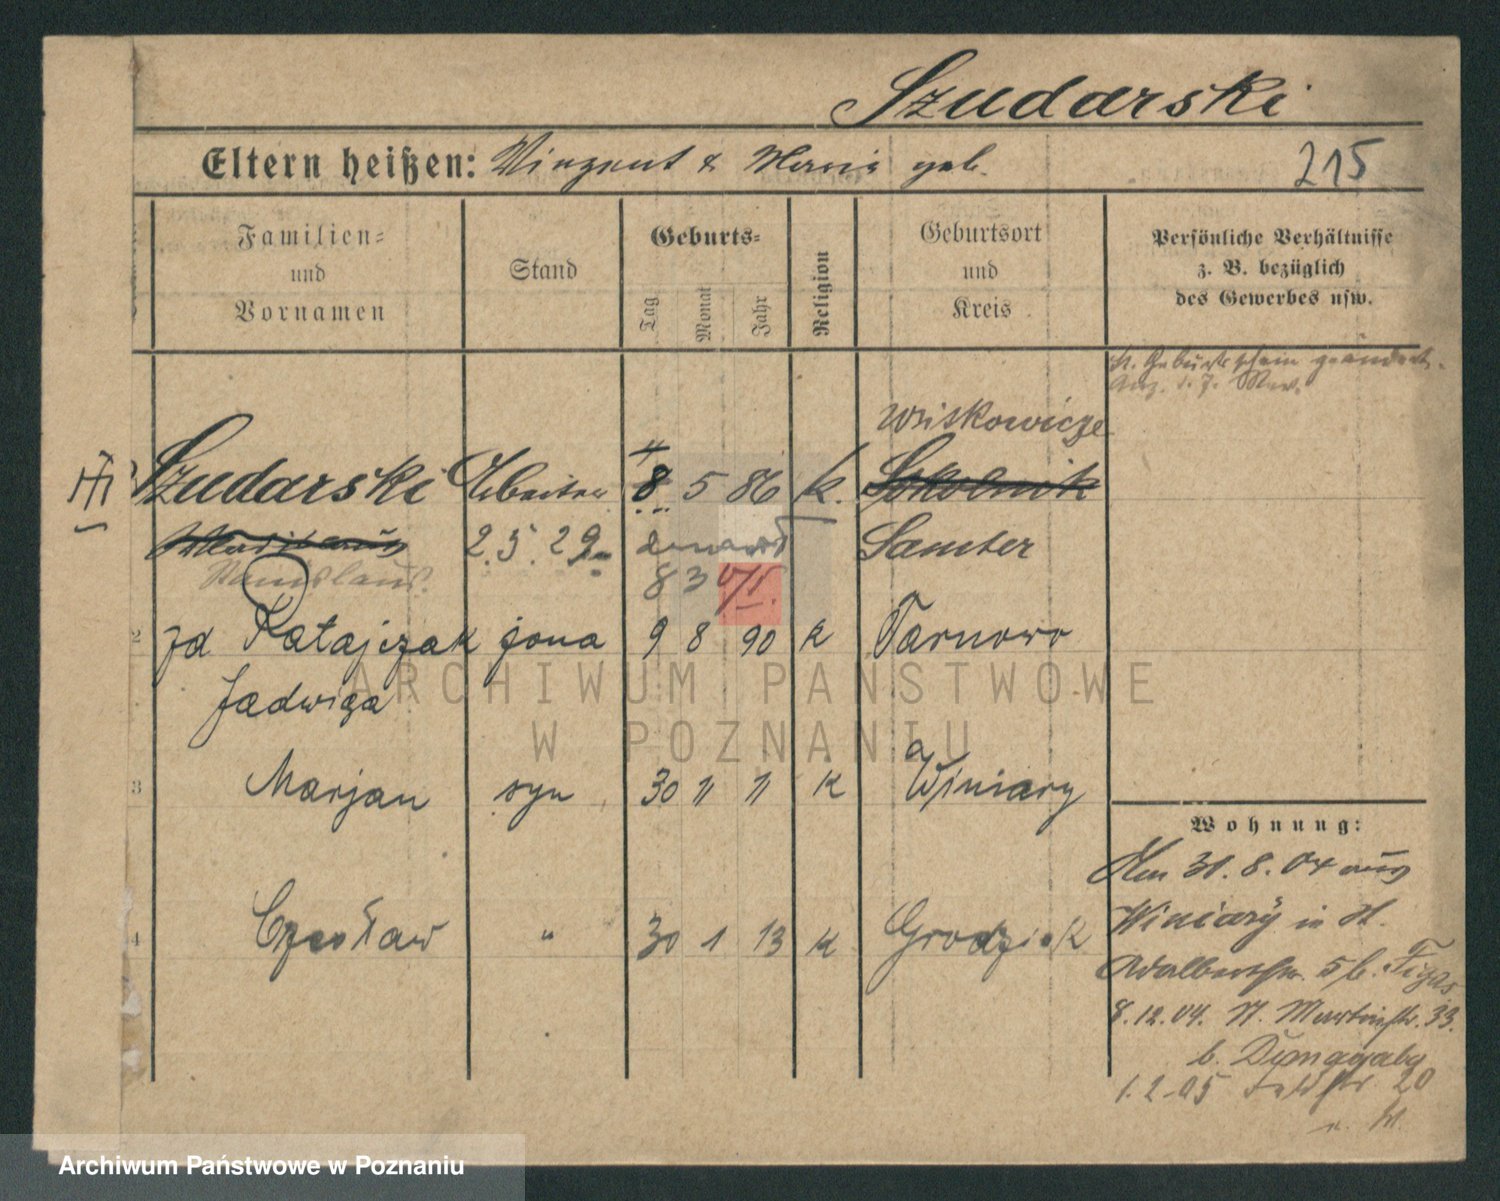 Szudarski
Eltern heißen: Vinzent & Maria geb.
215
Familien=
und
Vornamen
Stand
Geburts=
Tag
Monat
Jahr
Religion
Geburtsort
und
Kreis
Persönliche Verhältnisse
z. B. bezüglich
des Gewerbes usw.
lt. Geburtsschein geändert.
Szudarski Arbeiter 8 5 86 k. Sokolnik
2.5.29 Samter
Stanislaus
8 3 VI.
2 zd Ratajczak żona 9 8 90 k Tarnowo
Jadwiga
3 Marjan syn 30 11 11 k Winiary
4 Czesław " 30 1 13 k Grodzisk
Wohnung:
Am 31.8.04 aus
Winiary in
5 b. Figas
8.12.04. St. Martinstr. 33.
b.
1.2.05 20
ARCHIWUM PAŃSTWOWE
W POZNANIU
Archiwum Państwowe w Poznaniu